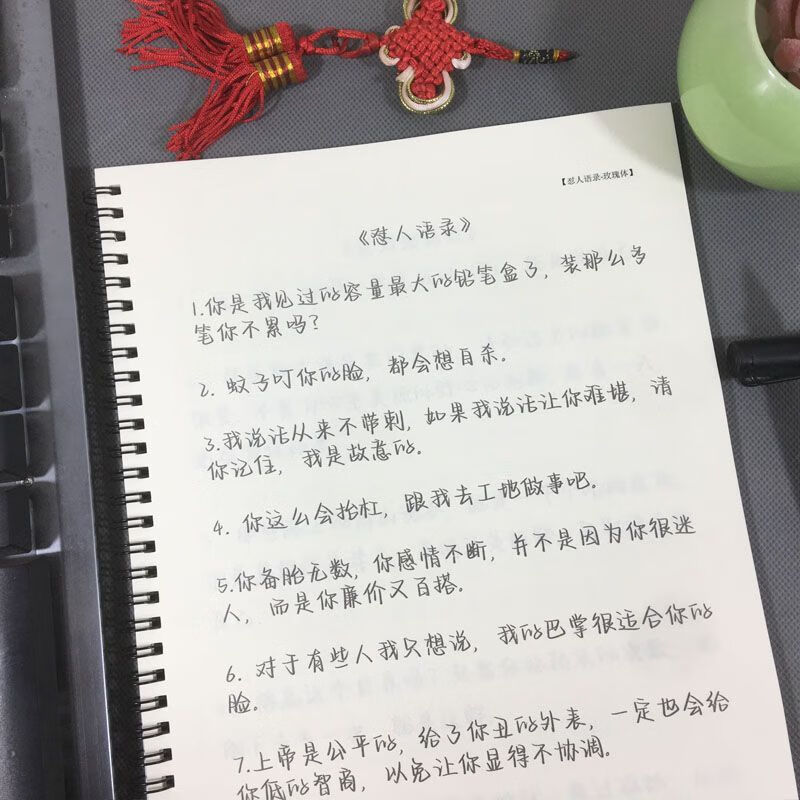 【怼人语录·玫瑰体】
《怼人语录》
1.你是我见过的容量最大的铅笔盒了，装那么多
笔你不累吗？
2. 蚊子叮你的脸，都会想自杀。
3.我说话从来不带刺，如果我说话让你难堪，请
你记住，我是故意的。
4. 你这么会抬杠，跟我去工地做事吧。
5.你备胎无数，你感情不断，并不是因为你很迷
人，而是你廉价又百搭。
6. 对于有些人我只想说，我的巴掌很适合你的
脸。
7.上帝是公平的，给了你丑的外表，一定也会给
你低的智商，以免让你显得不协调。